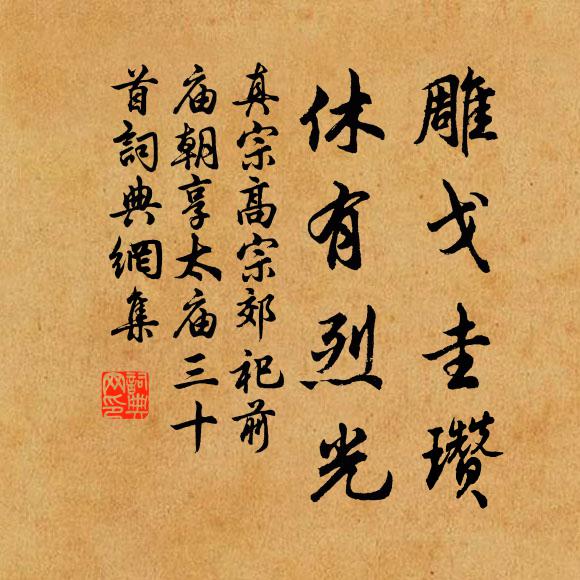 雕戈圭瓚
休有烈光
真宗高宗郊祀前
庙朝享太庙三十
首詞典網集
詞典网印